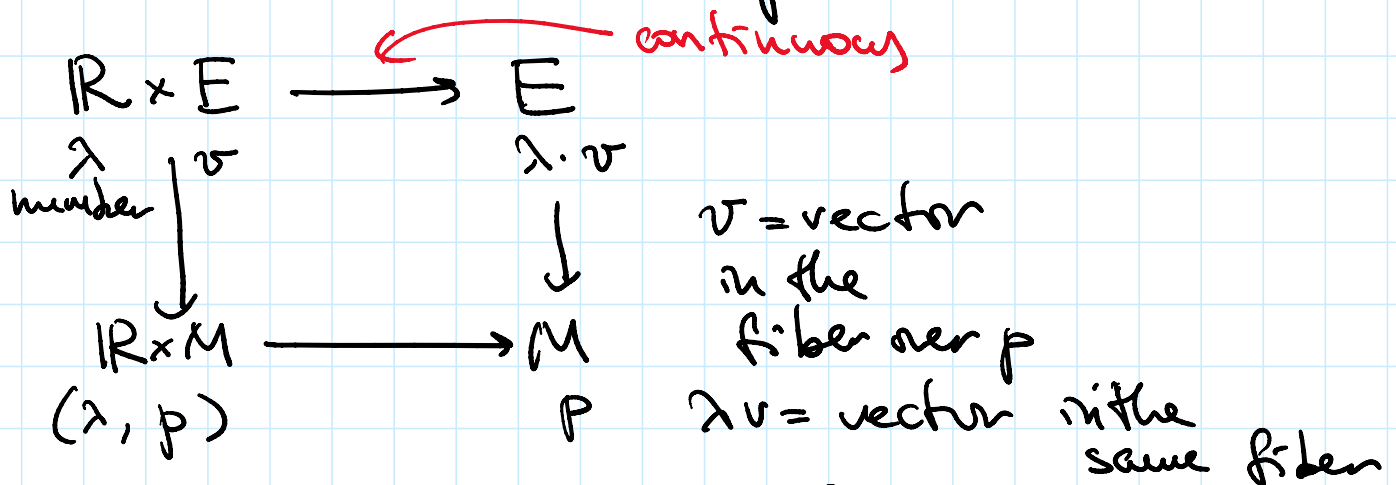 continuous
ℝ × E → E
λ v λ · v
number
v = vector
in the
fiber over p
ℝ × M → M
(λ, p) p
λv = vector in the
same fiber